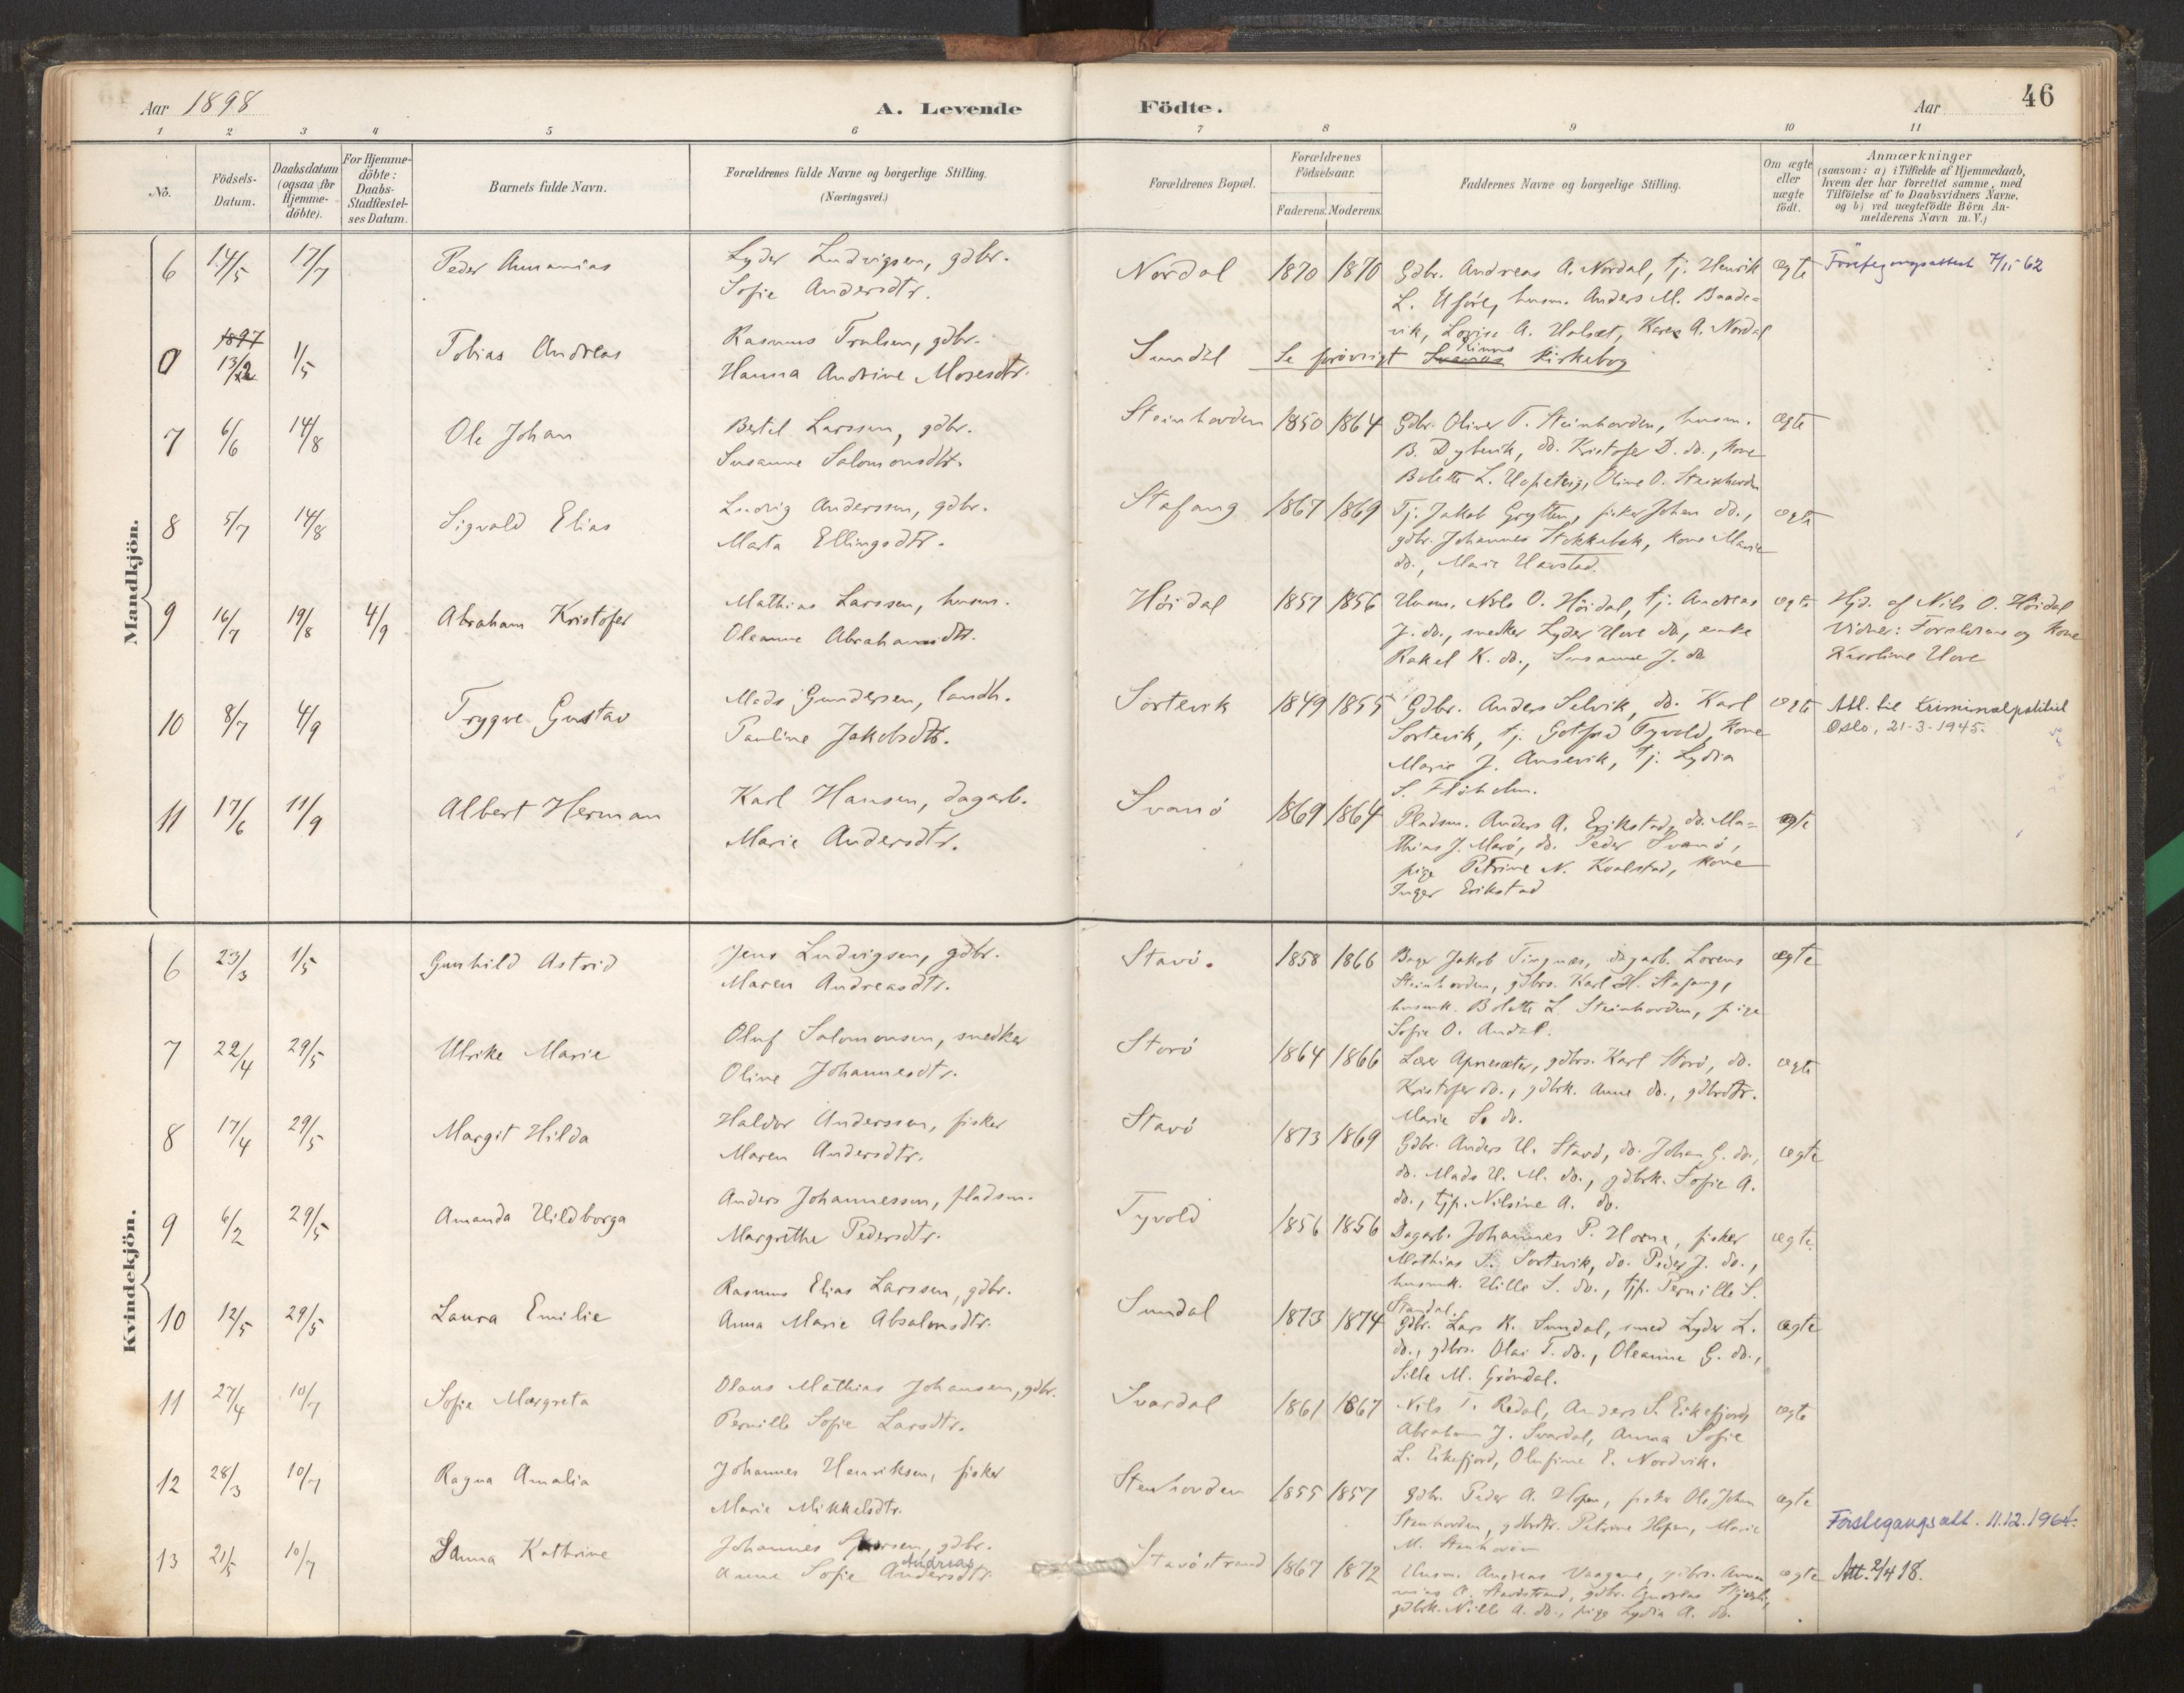 Aar 1898
A. Levende
Födte.
Aar
46
1 2 3 4 5 6 7 8 9 10 11
No.
Födsels-Datum.
Daabsdatum (ogsaa for Hjemme-döbte).
For Hjemme-döbte: Daabs-Stadfæstel-ses Datum.
Barnets fulde Navn.
Forældrenes fulde Navne og borgerlige Stilling. (Næringsvei.)
Forældrenes Bopæl.
Forældrenes Födselsaar.
Faderens. Moderens.
Faddernes Navne og borgerlige Stilling.
Om ægte eller uægte födt.
Anmærkninger
(saasom: a) i Tilfælde af Hjemmedaab, hvem der har forrettet samme, med Tilföielse af to Daabsvidners Navne, og b) ved uægtefödte Börn An-melderens Navn m. V.)
Mandkjön.
6 14/5 17/7 Peder Annanias Lyder Ludvigsen, gdbr. Nordal 1870 1870 Gdbr. Andreas A. Nordal, tj. Henrik ægte Förstegangsattest
Sofie Andersdtr. L. husm. Anders M. Baade-
vik, Lovise A. Halset, Karen A. Nordal
0 1897 13/12 1/5 Tobias Andreas Rasmus Trulsen, gdbr. Sundal Se forövrigt Svanö Kinns Kirkebog
Hanna Andrine Mosesdtr.
7 6/6 14/8 Ole Johan Bertel Larssen, gdbr. Steinhovden 1850 1864 Gdbr. Oliver T. Steinhovden, husm. ægte
Susanne Salomonsdtr. B. Dybevik, do. Kristofer D. do., kone
Bolette L. Oline O. Steinhovden
8 5/7 14/8 Sigvald Elias Ludvig Anderssen, gdbr. Stafang 1867 1869 Tj. Jakob Grytten, fisker Johan do., ægte
Marta Ellingsdtr. gdbr. Johannes Stokkebek, kone Marie
do., Marie Havstad.
9 16/7 19/8 4/9 Abraham Kristofer Mathias Larssen, husm. Höidal 1857 1856 Husm. Nils O. Höidal, tj. Andreas ægte Hjd. af Nils O. Höidal
Oleanne Abrahamsdtr. J. do., snedker Lyder Hove do., enke Vidner: Forældrene og kone
Rakel K. do., Susanne J. do. Karoline Hove
10 8/7 4/9 Trygve Gustav Mads Gundersen, landh. Sortevik 1849 1855 Gdbr. Anders Selvik, do. Karl ægte Att. til Kriminalpolitiet
Pauline Jakobsdtr. Sortevik, tj. Gotfred Tyvold, kone Oslo, 21-3-1945.
Marie J. Ausevik, tj. Lydia
S. Flöholm.
11 17/6 11/9 Albert Herman Karl Hansen, dagarb. Svanö 1869 1864 Pladsm. Anders A. Erikstad, do. Ma- ægte
Marie Andersdtr. thias J. Marö, do. Peder Svanö,
pige Petrine N. Kvalstad, kone
Inger Erikstad
Kvindekjön.
6 23/3 1/5 Gunhild Astrid Jens Ludvigsen, gdbr. Stavö. 1858 1866 Bager Jakob Tingnæs, dagarb. Lorens ægte
Maren Andreasdtr. Steinhovden, gdbrs. Karl H. Stafang,
husmk. Bolette L. Steinhovden, pige
Sofie O. Andal.
7 22/4 29/5 Ulrike Marie Oluf Salomonsen, snedker Storö 1864 1866 Lær Apnesæter, gdbrs. Karl Storö, do. ægte
Oline Johannesdtr. Kristofer do., gdbrk. Anne do., gdbrdtr.
Marie S. do.
8 17/4 29/5 Margit Hilda Haldor Anderssen, fisker Stavö 1873 1869 Gdbr. Anders H. Stavö, do. Johan G. do., ægte
Maren Andersdtr. do. Mads H. M. do., gdbrk. Sofie A.
do., tjp. Nilsine A. do.
9 6/2 29/5 Amanda Hildborga Anders Johannessen, pladsm. Tyvold 1856 1856 Dagarb. Johannes P. Horne, fisker ægte
Margrethe Pedersdtr. Mathias S. Sortevik, do. Peder J. do.,
husmk. Hille S. do., tjp. Pernille S.
Standal.
10 12/5 29/5 Laura Emilie Rasmus Elias Larssen, gdbr. Sundal 1873 1874 Gdbr. Lars K. Sundal, smed Lyder L. ægte
Anna Marie Absalonsdtr. do., gdbrs. Olai T. do., Oleanne G. do.,
Sille M. Gröndal.
11 27/4 10/7 Sofie Margreta Olaus Mathias Johansen, gdbr. Svardal 1861 1867 Nils T. Redal, Anders S. Eikefjord, ægte
Pernille Sofie Larsdtr. Abraham J. Svardal, Anna Sofie
L. Eikefjord, Olufine E. Nordvik.
12 28/3 10/7 Ragna Amalia Johannes Henriksen, fisker Stenhovden 1855 1857 Gdbr. Peder A. Hopen, fisker Ole Johan ægte
Marie Mikkelsdtr. Stenhovden, gdbrdtr. Petrine Hopen, Marie Förstegangsatt. 11.12.1964.
M. Stenhovden
13 21/5 10/7 Sanna Kathrine Johannes gdbr. Stavöstrand 1867 1872 Husm. Andreas Vaagane, gdbrs. Annan- ægte Att. 2/4 18.
Anne Sofie Andersdtr. Andreas nias A. Stavöstrand, gdbr. Andreas
gdbrk. Nille A. do., pige Lydia A. do.